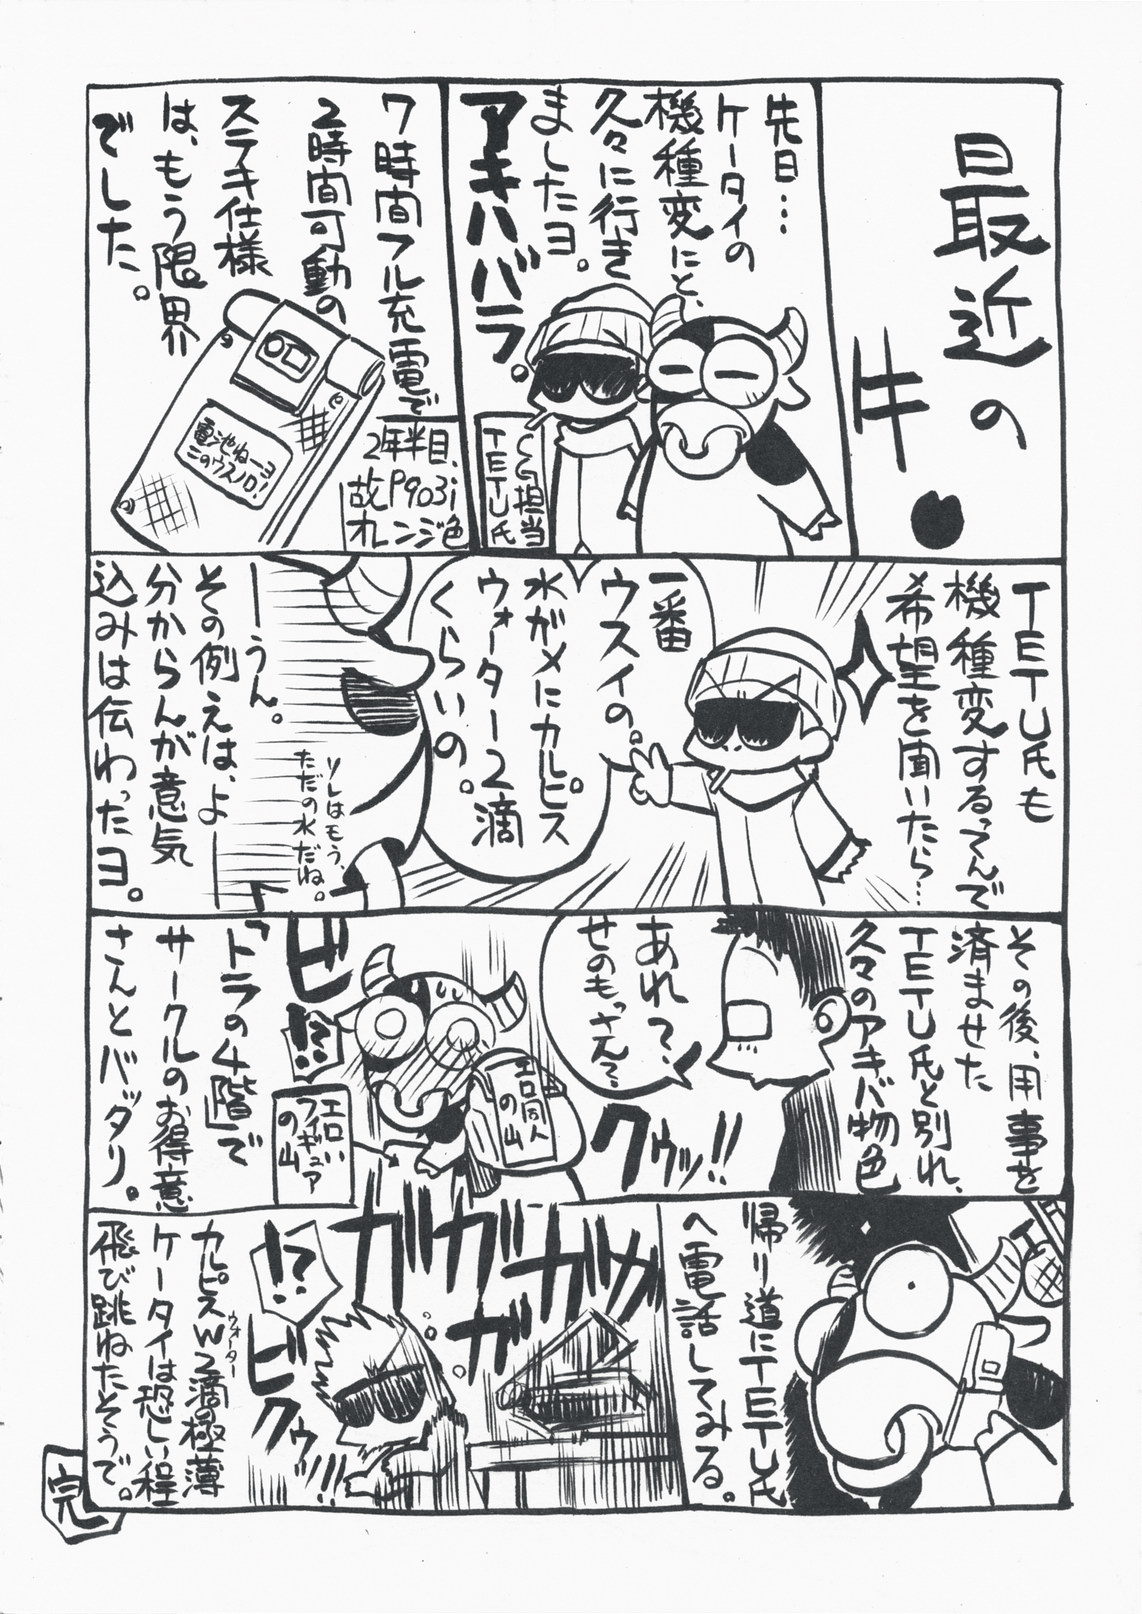 最近の
キ
先日…
ケータイの
機種変にと、
久々に行き
ましたヨ。
アキハバラ。
CG担当
TETU氏
7時間フル充電で
2時間可動の
ステキ仕様
は、もう限界
でした。
電池ねーヨ
このウスノロ!
2年半目、
故P903i
オレンジ色
TETU氏も
機種変するってんで
希望を聞いたら…
一番
ウスイの。
水ガメにカルピス
ウォーター2滴
くらいの。
ソレはもう、
ただの水だね。
ーうん。
その例えは、よー
分からんが意気
込みは伝わったヨ。
その後、用事を
済ませた
TETU氏と別れ、
久々のアキバ物色
あれ?
せのもっさん?
クウッ!!
ビ
!?
エロ同人
の山
エロい
フィギュア
の山
「トラの4階」で
サークルのお得意
さんとバッタリ。
帰り道にTETU氏
へ電話してみる。
ガガガガガ
!?
ビクウッ!!
カルピスW2滴の極薄
ウォーター
ケータイは恐しい程
飛び跳ねたそうで。
完